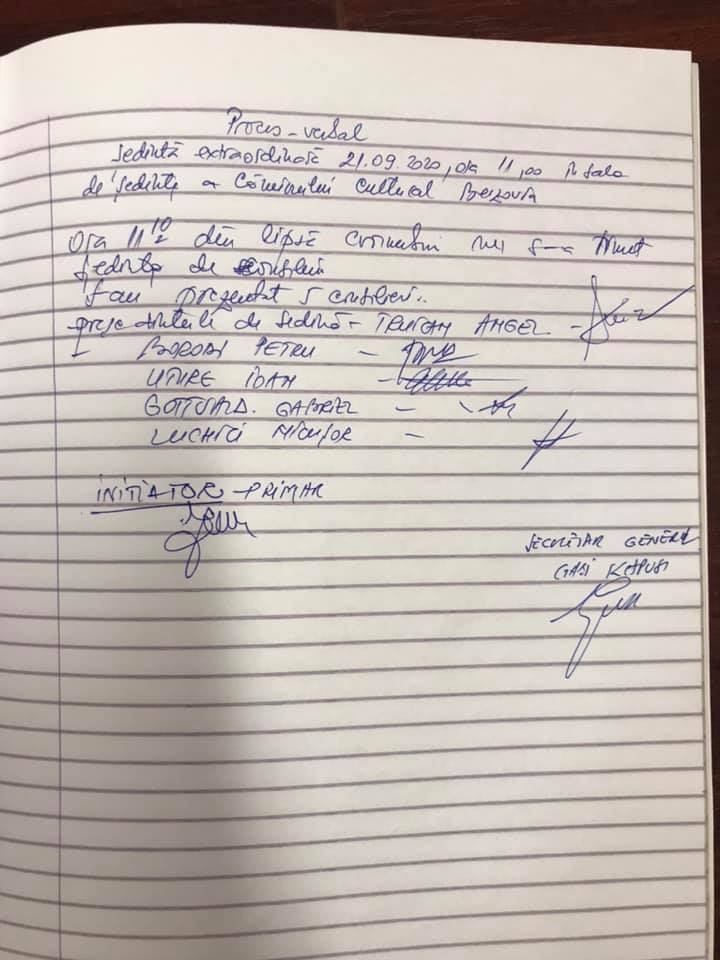 Proces-verbal
Ședință extraordinară 21.09.2020, ora 11,00 în sala
de ședințe a Căminului Cultural Berzovia
Ora 11 10 din lipsă nu s-a ținut
ședința de
S-au prezentat 5 consilieri..
de ședință - ANGEL -
PETRU -
UTURE IOAN -
GABRIEL -
LUCHICI -
INIȚIATOR - PRIMAR
SECRETAR GENERAL
GABI